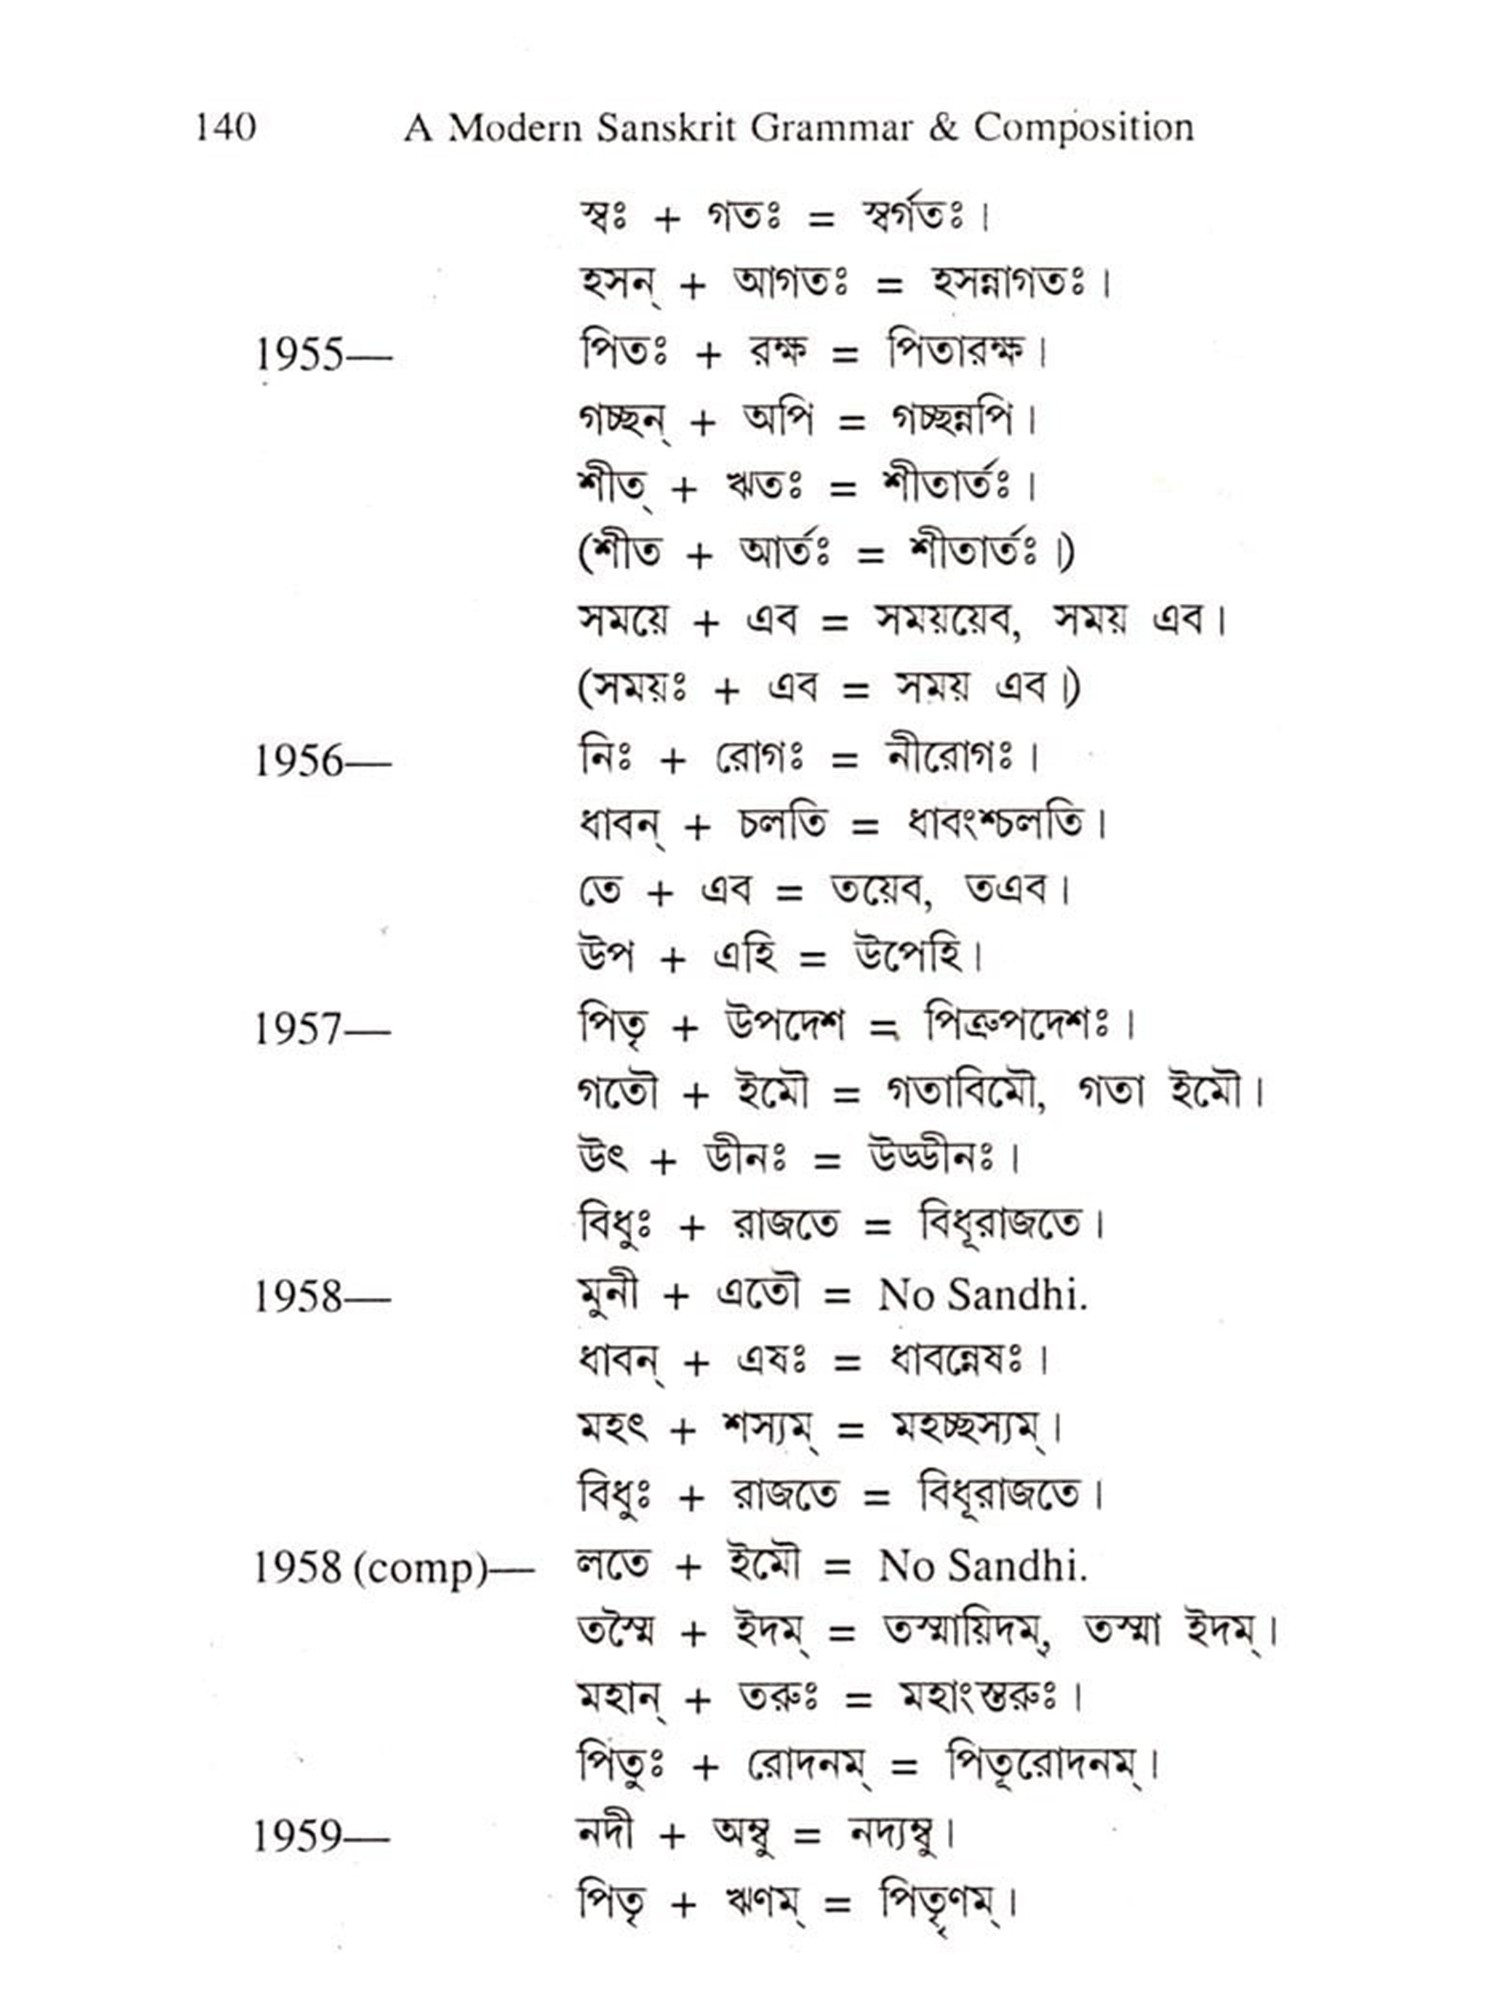 140 A Modern Sanskrit Grammar & Composition
স্বঃ + গতঃ = স্বর্গতঃ।
হসন্ + আগতঃ = হসন্নাগতঃ।
1955— পিতঃ + রক্ষ = পিতারক্ষ।
গচ্ছন্ + অপি = গচ্ছন্নপি।
শীত্ + ঋতঃ = শীতার্তঃ।
(শীত + আর্তঃ = শীতার্তঃ।)
সময়ে + এব = সময়য়েব, সময় এব।
(সময়ঃ + এব = সময় এব।)
1956— নিঃ + রোগঃ = নীরোগঃ।
ধাবন্ + চলতি = ধাবংশ্চলতি।
তে + এব = তয়েব, তএব।
উপ + এহি = উপেহি।
1957— পিতৃ + উপদেশ = পিত্রুপদেশঃ।
গতৌ + ইমৌ = গতাবিমৌ, গতা ইমৌ।
উৎ + ডীনঃ = উড্ডীনঃ।
বিধুঃ + রাজতে = বিধূরাজতে।
1958— মুনী + এতৌ = No Sandhi.
ধাবন্ + এষঃ = ধাবন্নেষঃ।
মহৎ + শস্যম্ = মহচ্ছস্যম্।
বিধুঃ + রাজতে = বিধূরাজতে।
1958 (comp)— লতে + ইমৌ = No Sandhi.
তস্মৈ + ইদম্ = তস্মায়িদম্, তস্মা ইদম্।
মহান্ + তরুঃ = মহাংস্তরুঃ।
পিতুঃ + রোদনম্ = পিতূরোদনম্।
1959— নদী + অম্বু = নদ্যম্বু।
পিতৃ + ঋণম্ = পিতৄণম্।